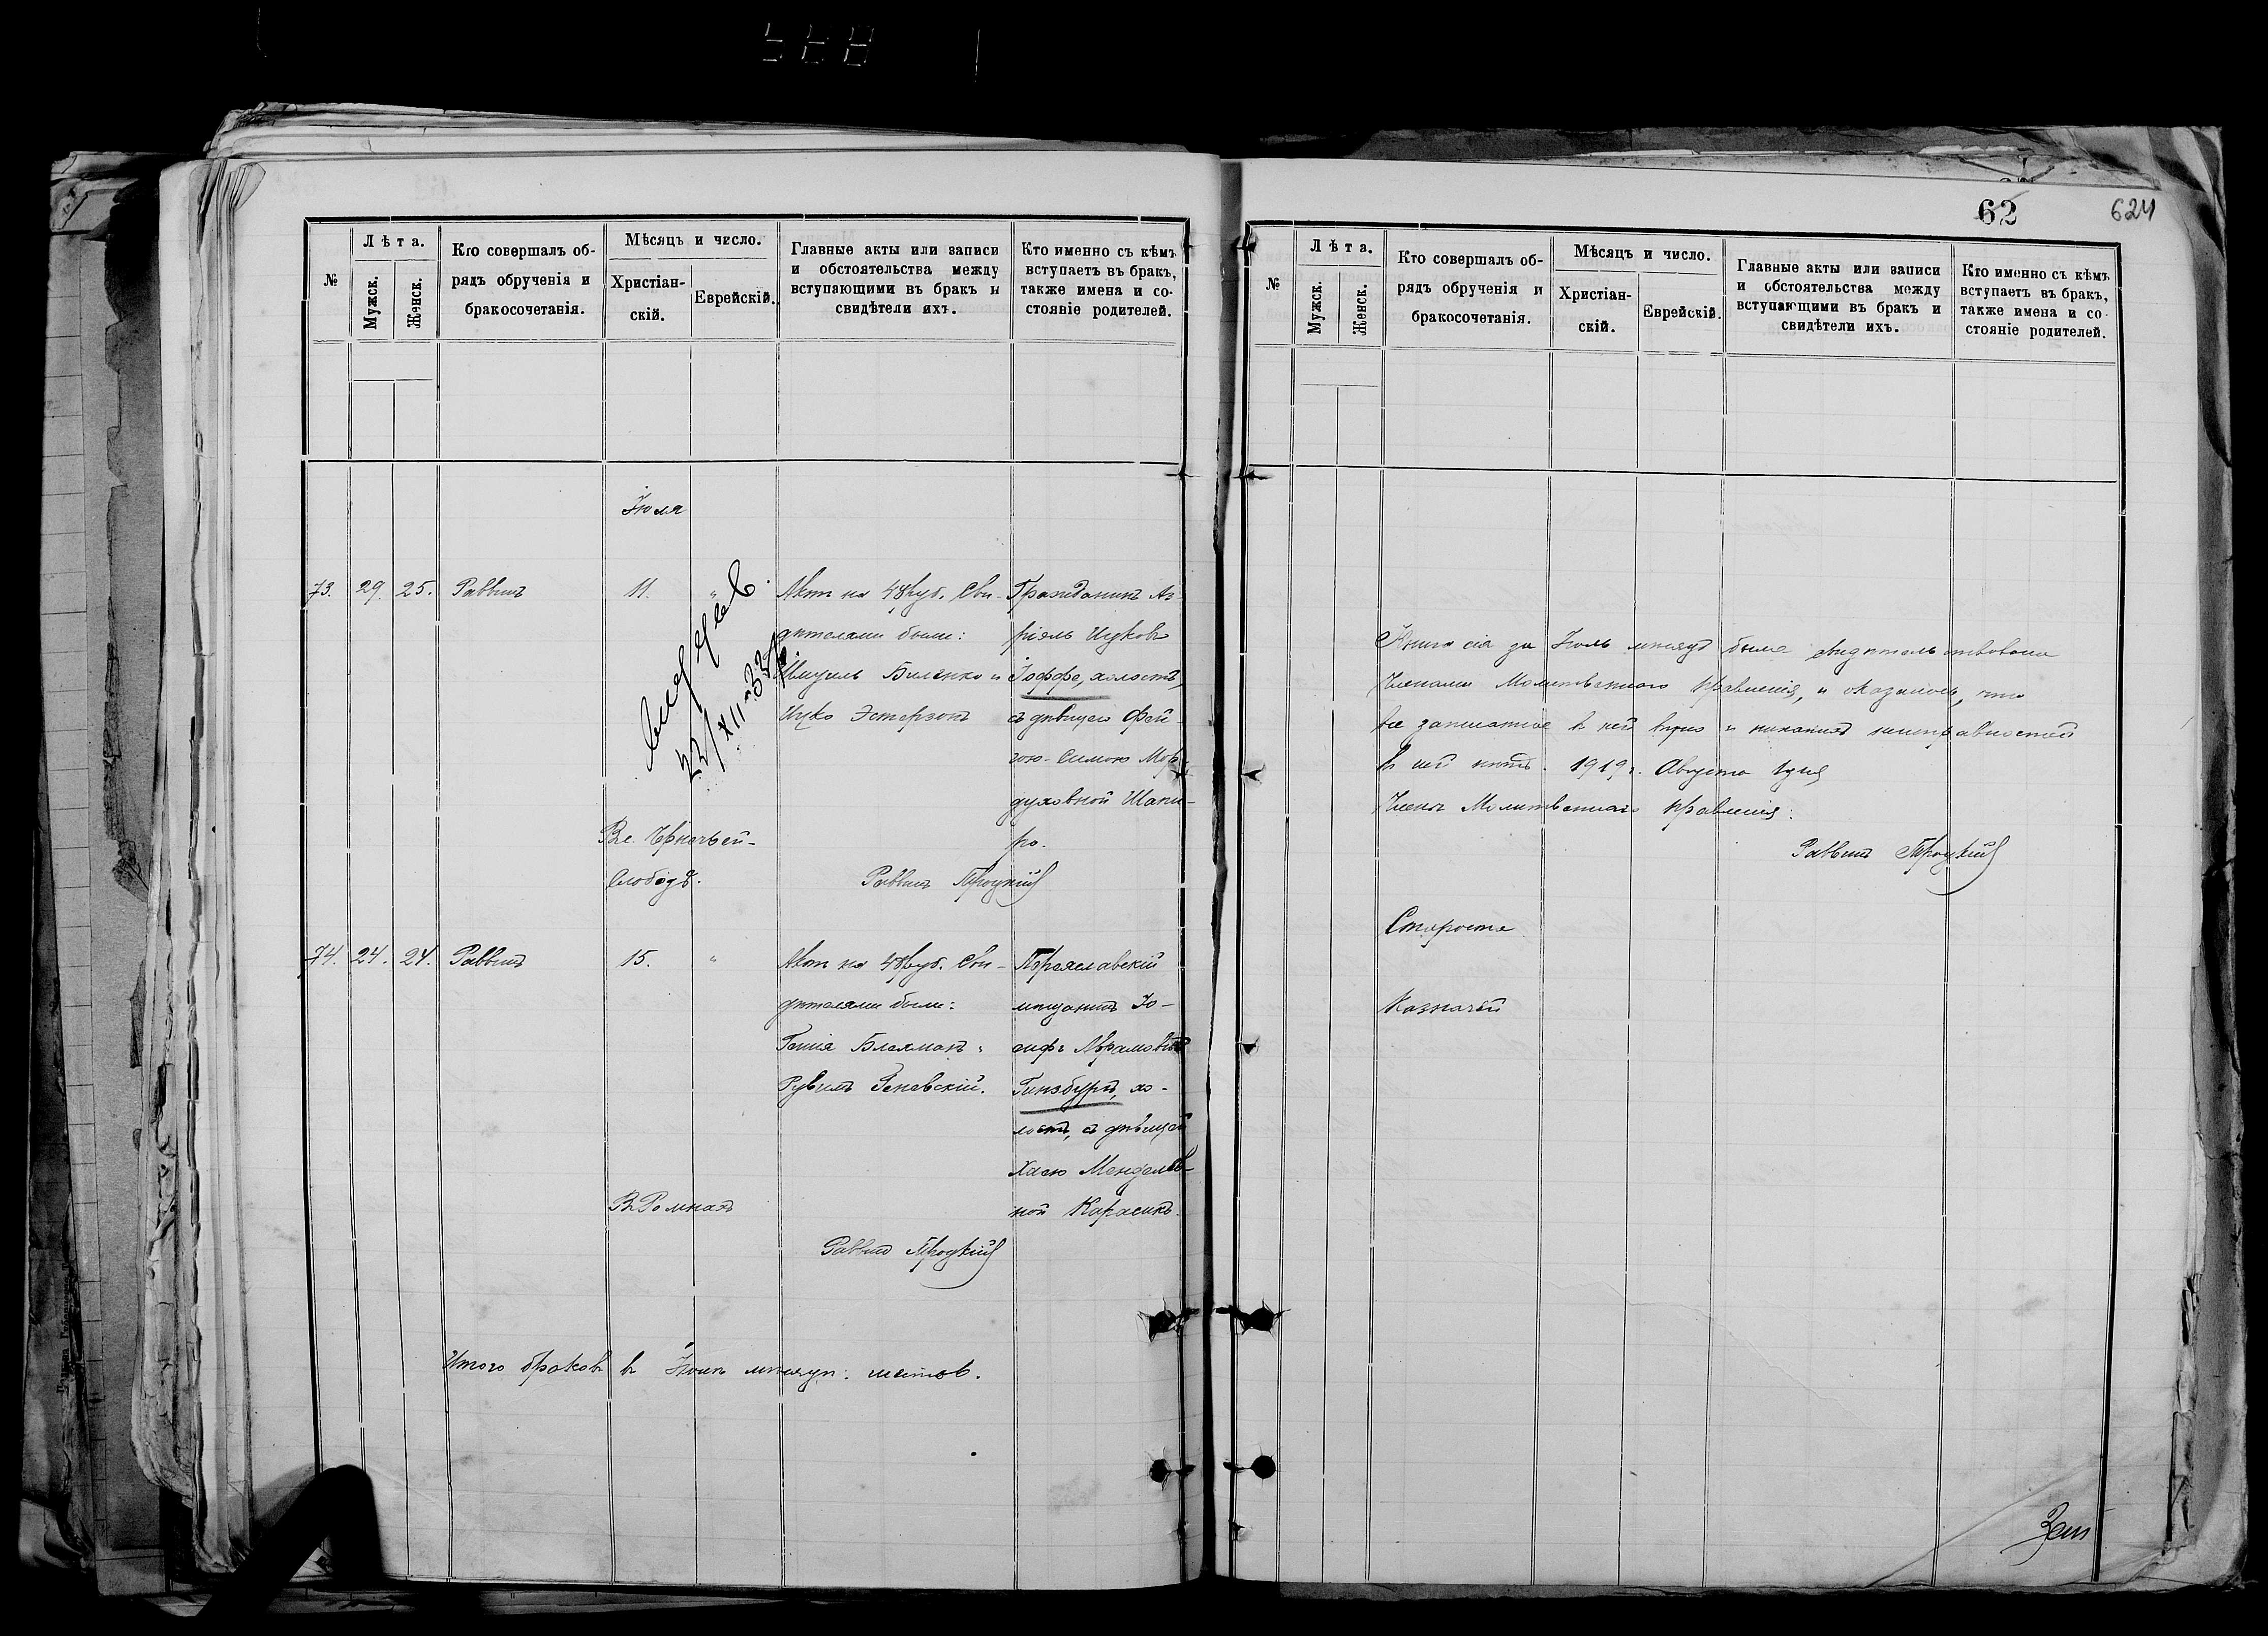 588
№
Лѣта.
Мужск.
Женск.
Кто совершалъ об-
рядъ обрученія и
бракосочетанія.
Мѣсяцъ и число.
Христіан-
скій.
Еврейскій.
Главные акты или записи
и обстоятельства между
вступающими въ бракъ и
свидѣтели ихъ.
Кто именно съ кѣмъ
вступаетъ въ бракъ,
также имена и со-
стояніе родителей.
Іюля
73. 29. 25. Раввинъ 11. "
Актъ на 48 руб. Сви-
дѣтелями были:
Шмуиль Биленко и
Ицко Эстерзонъ
Гражданинъ Аз-
ріель Ицковъ
Іоффе, холостъ,
съ дѣвицею Фей-
гою-Симою Мор-
духовной Шапи-
ро.
22/XII-33
Въ с. Чернечьей-
Слободѣ.
Раввинъ Троцкій
74. 24. 24. Раввинъ 15. "
Актъ на 48 руб. Сви-
дѣтелями были:
Гешія Блехманъ и
Рувимъ Геневскій.
Переяславскій
мѣщанинъ Іо-
сифъ Абрамовъ
Гинзбургъ, хо-
лостъ, съ дѣвицей
Хасею Менделев-
ной Карасикъ.
Въ Ромнахъ
Раввинъ Троцкій
Итого браковъ въ Іюлѣ мѣсяцѣ: шесть.
62
624
№
Лѣта.
Мужск.
Женск.
Кто совершалъ об-
рядъ обрученія и
бракосочетанія.
Мѣсяцъ и число.
Христіан-
скій.
Еврейскій.
Главные акты или записи
и обстоятельства между
вступающими въ бракъ и
свидѣтели ихъ.
Кто именно съ кѣмъ
вступаетъ въ бракъ,
также имена и со-
стояніе родителей.
Книга сія за Іюль мѣсяцъ была свидѣтельствована
Членами Молитвеннаго правленія, и оказалось, что
все записанное въ ней вѣрно и никакихъ неисправностей
въ ней нѣтъ. 1919 г. Августа 1 дня
Члены Молитвеннаго правленія:
Раввинъ Троцкій
Староста
Казначей